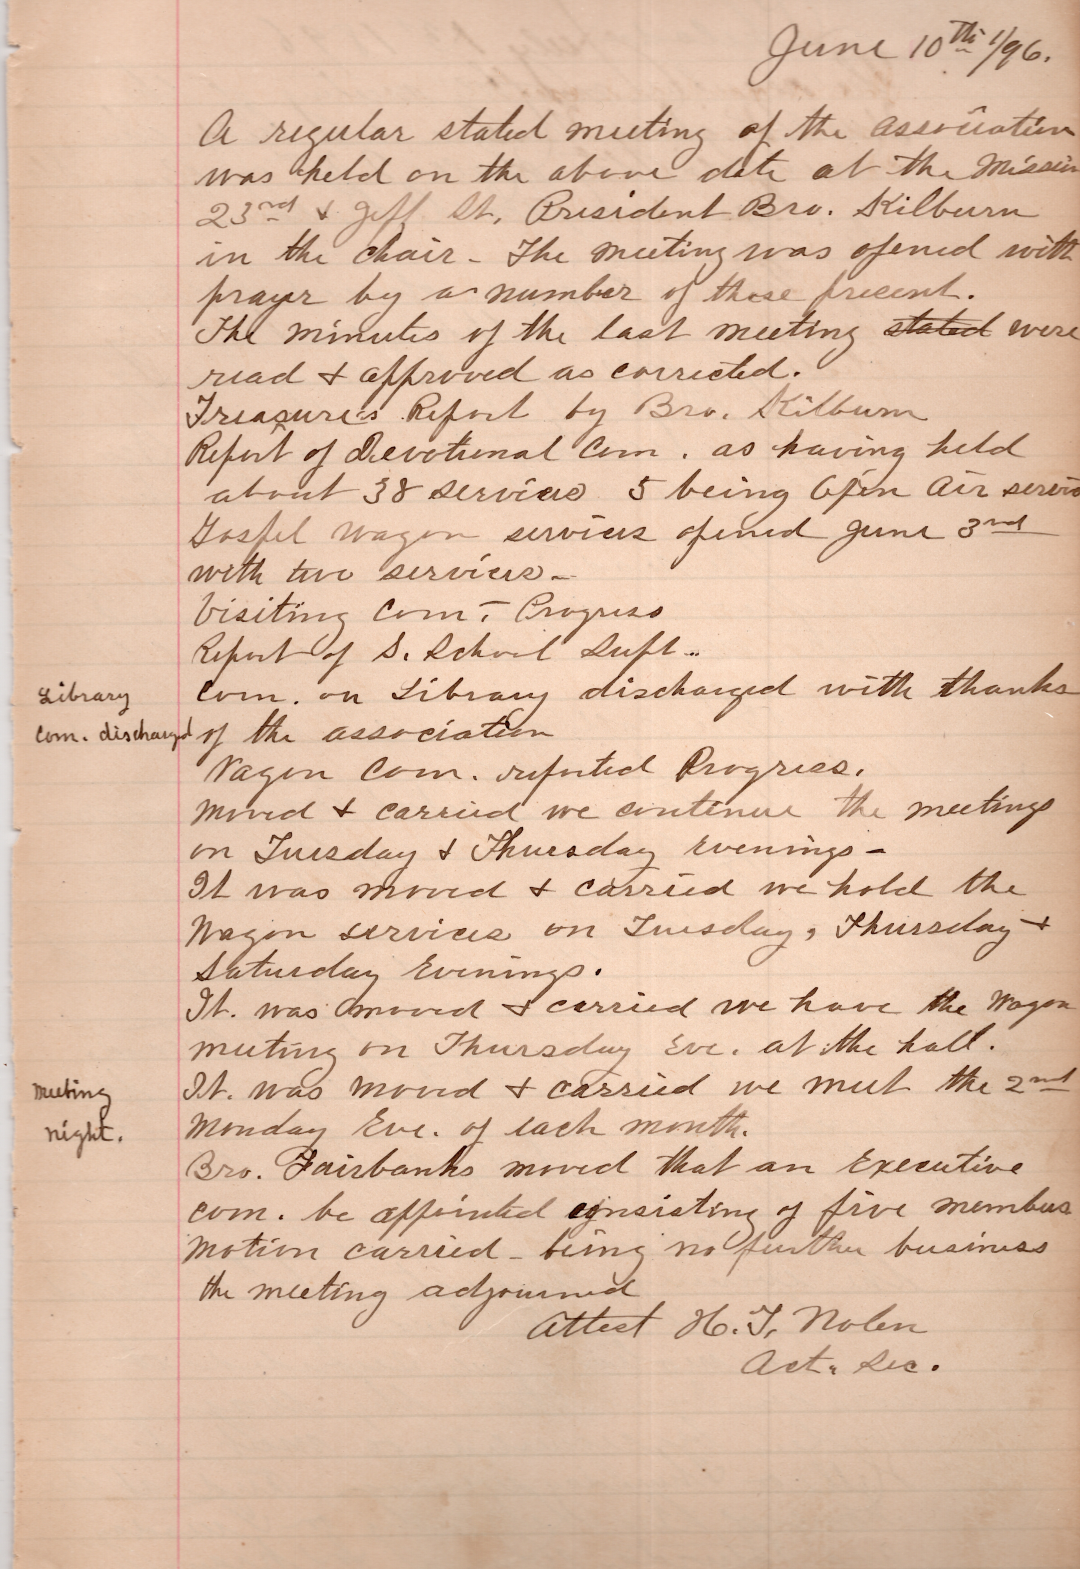 June 10th 1/96.
A regular stated meeting of the association
was held on the above date at the Mission
23rd & Jeff St, President Bro. Kilburn
in the chair - The meeting was opened with
prayer by a number of those present.
The minutes of the last meeting stated were
read & approved as corrected.
Treasurer's Report by Bro. Kilburn
Report of Devotional Com. as having held
about 38 services 5 being Open Air servic
Gospel Wagon services opened June 3rd
with two services -
Visiting Com. - Progress
Report of S. School Supt -
Library
Com. on Library discharged with thanks
Com. discharged
of the association
Wagon Com. reported Progress.
Moved & carried we continue the meetings
on Tuesday & Thursday Evenings -
It was moved & carried we hold the
Wagon services on Tuesday, Thursday &
Saturday Evenings.
It. was moved & carried we have the Wagon
meeting on Thursday Eve. at the hall.
Meeting
It. was moved & carried we meet the 2nd
night.
Monday Eve. of each month.
Bro. Fairbanks moved that an Executive
com. be appointed consisting of five members
Motion carried - being no further business
the meeting adjourned
Attest H. T. Nolen
Act. Sec.